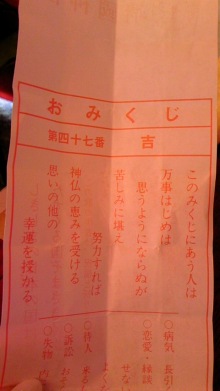 おみくじ
第四十七番 吉
このみくじにあう人は
万事はじめは
思うようにならぬが
苦しみに堪え
努力すれば
神仏の恵みを受ける
思いの他の
幸運を授かる
○病気 長引
○恋愛・縁談
○待人
○訴訟 おそ
○失物 内